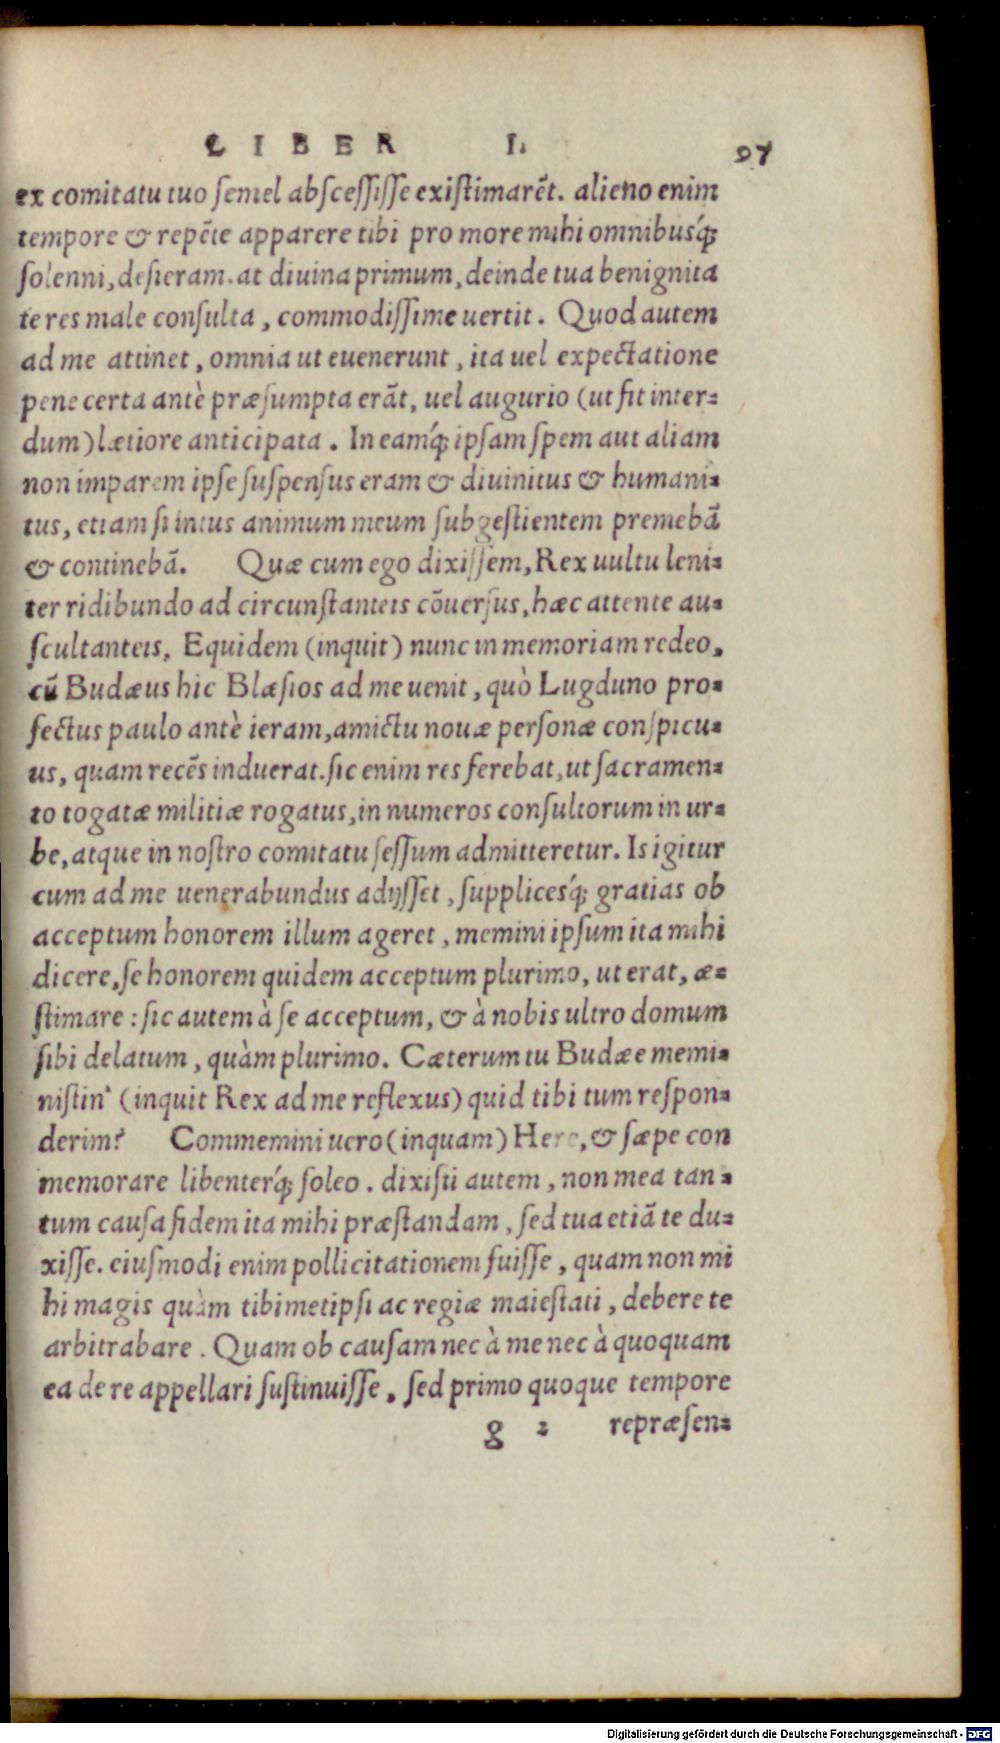 LIBER I. 97
ex comitatu tuo semel abscessisse existimarēt. alieno enim
tempore & repēte apparere tibi pro more mihi omnibusq́;
solenni, desieram. at diuina primum, deinde tua benignita
te res male consulta, commodissime uertit. Quod autem
ad me attinet, omnia ut euenerunt, ita uel expectatione
pene certa antè præsumpta erāt, uel augurio (ut fit inter-
dum) lætiore anticipata. In eamq́; ipsam spem aut aliam
non imparem ipse suspensus eram & diuinitus & humani-
tus, etiam si intus animum meum subgestientem premebā
& continebā. Quæ cum ego dixissem, Rex uultu leni-
ter ridibundo ad circunstanteis cōuersus, hæc attente au-
scultanteis, Equidem (inquit) nunc in memoriam redeo,
cū Budæus hic Blæsios ad me uenit, quò Lugduno pro-
fectus paulo antè ieram, amictu nouæ personæ conspicu-
us, quam recēs induerat. sic enim res ferebat, ut sacramen-
to togatæ militiæ rogatus, in numeros consultorum in ur-
be, atque in nostro comitatu sessum admitteretur. Is igitur
cum ad me uenerabundus adijsset, supplicesq́; gratias ob
acceptum honorem illum ageret, memini ipsum ita mihi
dicere, se honorem quidem acceptum plurimo, ut erat, æ-
stimare: sic autem à se acceptum, & à nobis ultro domum
sibi delatum, quàm plurimo. Cæterum tu Budæe memi-
nistin' (inquit Rex ad me reflexus) quid tibi tum respon-
derim? Commemini uero (inquam) Here, & sæpe con
memorare libenterq́; soleo. dixisti autem, non mea tan-
tum causa fidem ita mihi præstandam, sed tua etiā te du-
xisse. eiusmodi enim pollicitationem fuisse, quam non mi
hi magis quàm tibimetipsi ac regiæ maiestati, debere te
arbitrabare. Quam ob causam nec à me nec à quoquam
ea de re appellari sustinuisse, sed primo quoque tempore
g 2 repræsen-
Digitalisierung gefördert durch die Deutsche Forschungsgemeinschaft - DFG